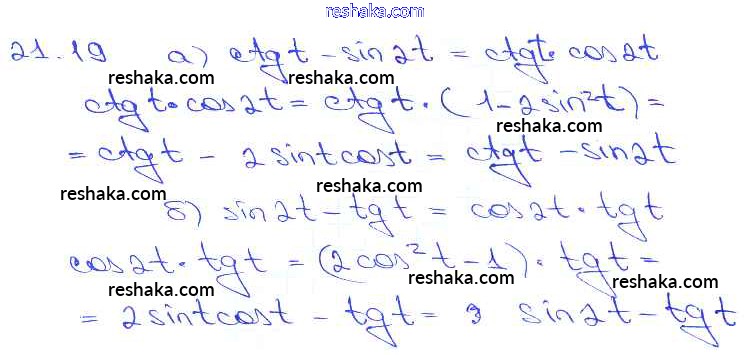 reshaka.com
21.19 а) ctg t - sin 2t = ctg t · cos 2t
reshaka.com reshaka.com
ctg t · cos 2t = ctg t · (1 - 2 sin²t) =
reshaka.com
= ctg t - 2 sin t cos t = ctg t - sin 2t
reshaka.com reshaka.com
б) sin 2t - tg t = cos 2t · tg t
reshaka.com
cos 2t · tg t = (2 cos²t - 1) · tg t =
reshaka.com reshaka.com reshaka.com
= 2 sin t cos t - tg t = sin 2t - tg t